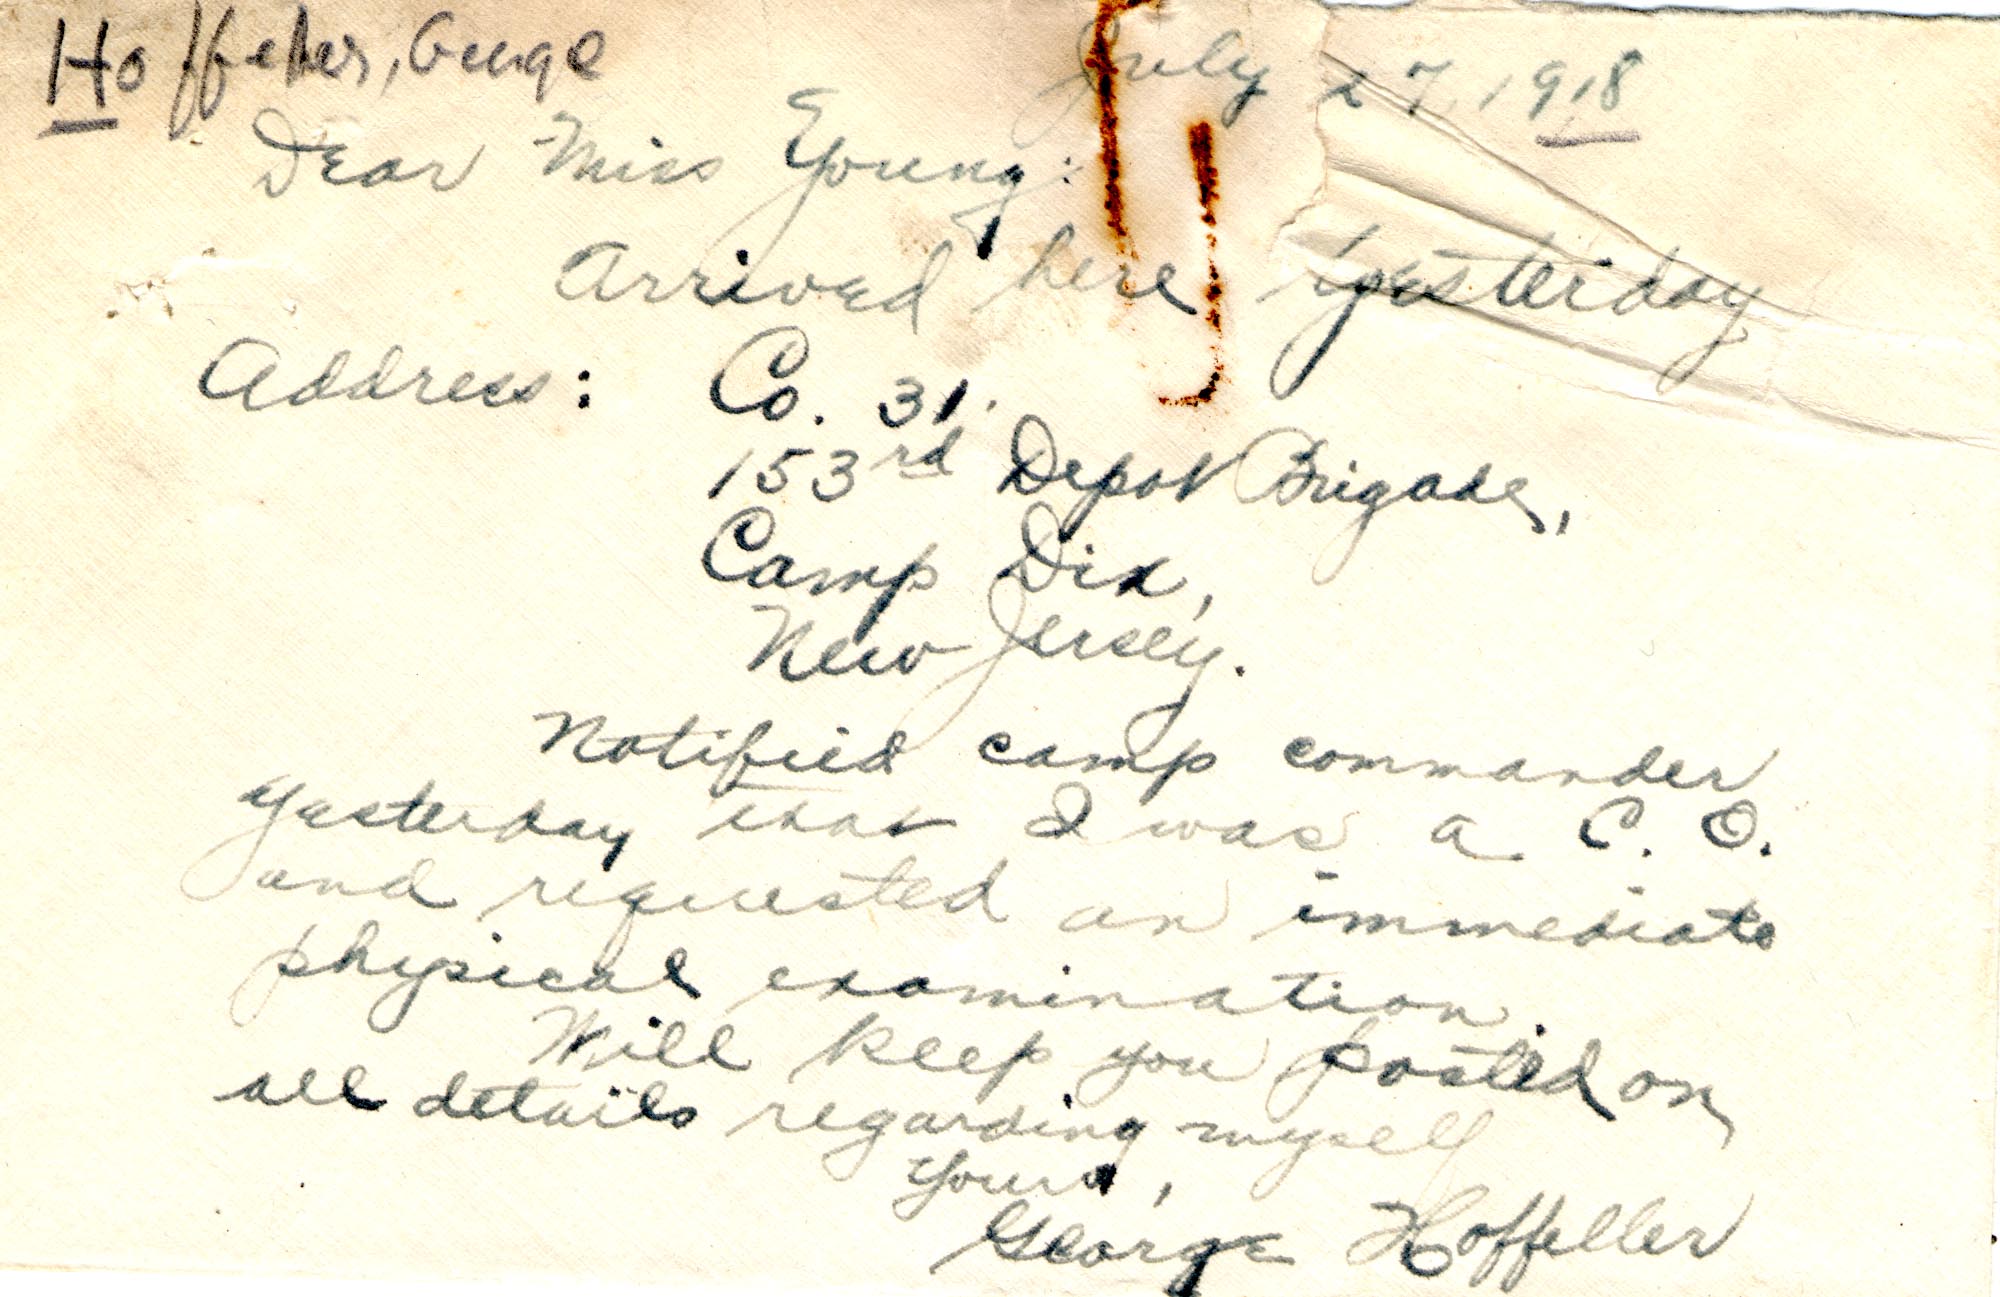 Hoffeller, George
July 27, 1918
Dear Miss Young:
Arrived here yesterday
Address: Co. 31.
153rd Depot Brigade,
Camp Dix,
New Jersey.
Notified camp commander
yesterday that I was a C. O.
and requested an immediate
physical examination.
Will keep you posted on
all details regarding myself
Yours,
George Hoffeller